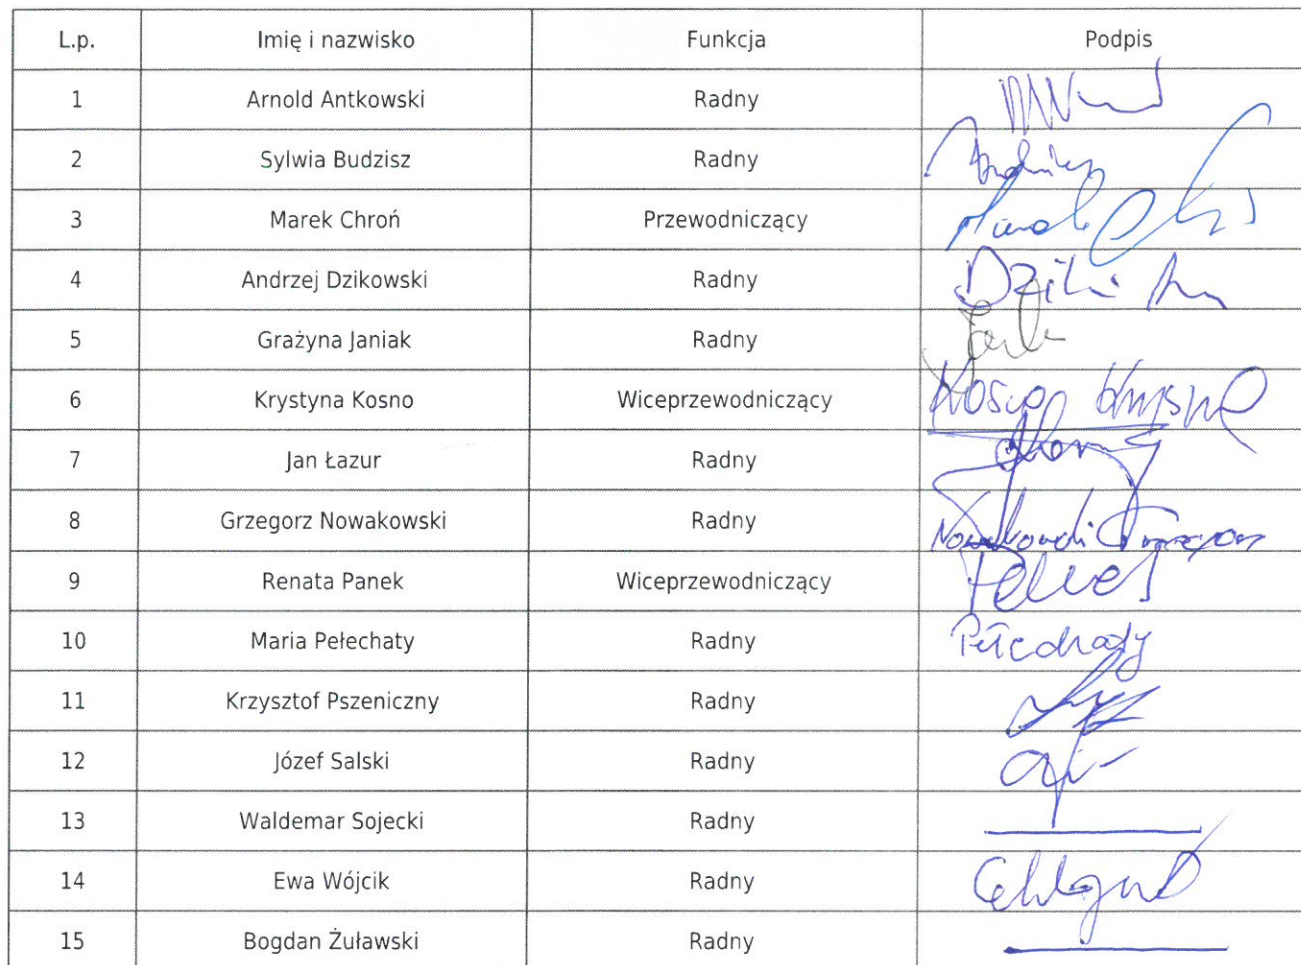 L.p. Imię i nazwisko Funkcja Podpis
1 Arnold Antkowski Radny
2 Sylwia Budzisz Radny
3 Marek Chroń Przewodniczący Marek
4 Andrzej Dzikowski Radny
5 Grażyna Janiak Radny
6 Krystyna Kosno Wiceprzewodniczący Kosno
7 Jan Łazur Radny
8 Grzegorz Nowakowski Radny Nowakowski Grzegorz
9 Renata Panek Wiceprzewodniczący
10 Maria Pełechaty Radny Pełechaty
11 Krzysztof Pszeniczny Radny
12 Józef Salski Radny
13 Waldemar Sojecki Radny
14 Ewa Wójcik Radny
15 Bogdan Żuławski Radny